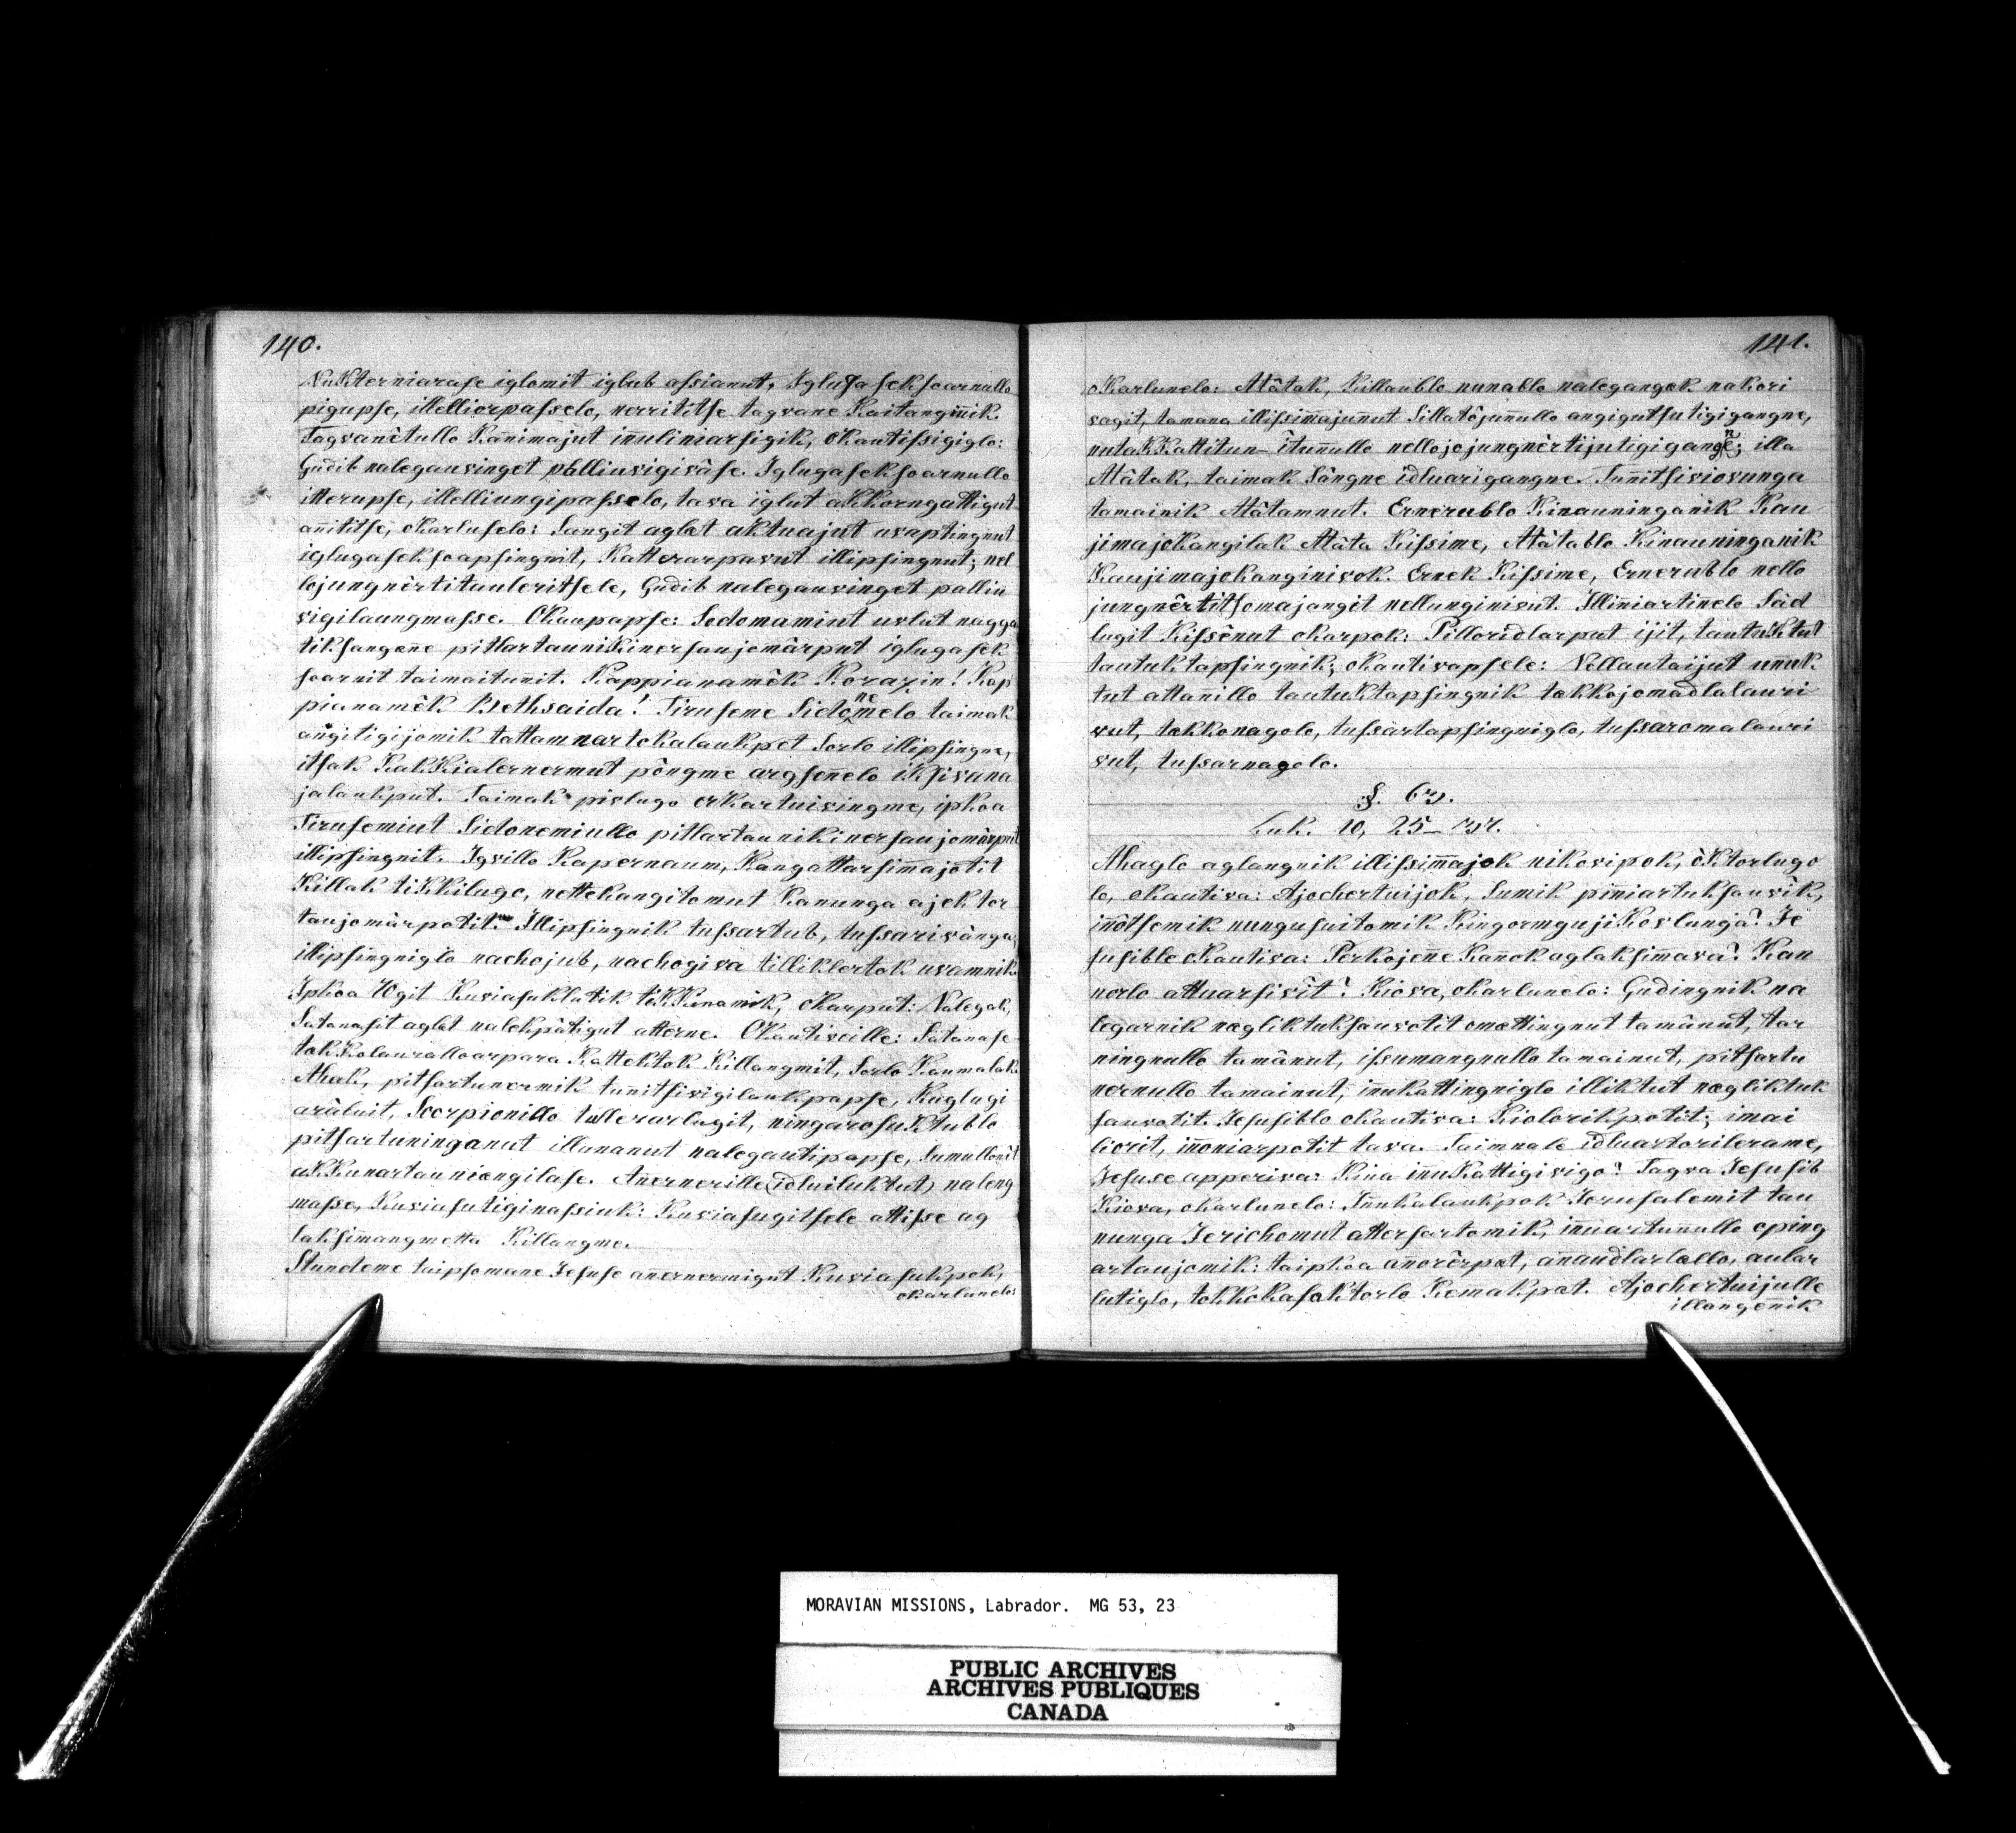 140.
Nukterniarase iglomit iglub aſsianut, Iglugasekſoarnullo
pigupse, illelliorpaſselo, nerrititse tagvane Kaitangin̄ik.
Tagvanêtullo Kan̄imajut in̄uliniarsigik, okautiſsigiglo:
Gudib nalegauvinget palliuvigivâse. Iglugasekſoarnullo
itterupse, illelliungipaſselo, tava iglut akkorngattigut
an̄ititse, okarluselo: Sangit aglat aktuajut uvaptingnut
iglugasekſoapsingnit, Katterarpavut illipsingnut; nel
lojungnèrtitauleritsele, Gudib nalegauvinget palliu
vigilaungmaſse. Okaupapse: Sodomamiut uvlut nagga
tiksangan̄e pitlartaunikinersaujomârput iglugasek
soarnit taimaitunit. Kappianamêk Korazin! Kap
pianamêk Bethsaida! Tiruseme Sidonemelo taimak
angitigijomik tattamnartokalaukpat Sorlo illipsingne,
itsak KakKialernermut pôngme argsen̄elo iksivana
jalaukput. Taimak pivlugo erkartuivingme, ipkoa
Tirusemiut Sidonemiullo pitlartaunikinersaujomârput
illipsingnit. Igvillo Kapernaum, Kangattarsim̄ajotit
Killak tikKilugo, nettekangitomut Kanunga ajektor
taujomârpotit. Illipsingnik tuſsartub, tuſsarivânga;
illipsingniglo nachojub, nachogiva tilliklertok uvamnik.
Ipkoa 70git Kuviasuklutik tikKunamik, okarput: Nalegak,
Satanasit aglat nalekpâtigut atterne. Okautiveille: Satanase
takkolauralloarpara Kattektok Killangmit, Sorlo Kaumalak.
Ahak, pitsartunermik tun̄itsivigilaukpapse, Kuglugi
arâluit, Scorpionillo tullerarlugit, ningarosuktublo
pitsartuninganut illunanut nalegautipapse, Sumullonêt
akKunartauniangilase. An̄ernerille (idluiluktut) naleng
maſse, Kuviasutiginaſsiuk: Kuviasugitsele attiſse ag
laksim̄angmetta Killangme.
Stundeme taipsomane Jesuse an̄ernermigut Kuviasukpok,
okarlunelo:
141.
okarlunelo: Atâtak, Killaublo nunablo nalegangak nakori
vagit, tamana illiſsim̄ajun̄ut Sillatôjun̄ullo angigutsutigigangne,
nutakKattitun-îtun̄ullo nellojojungnêrtijutigigangne; illa
Atâtak, taimak Sângne idluarigangne. Tun̄itsiviovunga
tamainik Atâtamnut. Ernerublo Kinauninganik Kau
jimajokangilak Atâta Kiſsime, Atâtablo Kinauninganik
Kaujimajokanginivok. Ernek Kiſsime, Ernerublo nello
jungnêrtitsomajangit nellunginivut. Illin̄iartin̄elo Sâd
lugit Kiſsênut okarpok: Pilloridlarput ijit, tautuktut
tautuktapsingnik; okautivapsele: Nellautaijut un̄uk
tut attan̄illo tautuktapsingnik takkojomadlalauri
vut, takkonagolo, tuſsartapsingniglo, tuſsaromalauri
vut, tuſsarnagolo.
§. 63.
Luk. 10, 25–37.
Ahaglo aglangnik illiſsim̄ajok nikovipok, ôktorlugo
lo, okautiva: Ajochertuijok, Sumik pin̄iartuksauvik,
in̄ôtsemik nungusuitomik KingormgujiKovlunga? Je
susible okautiva: Perkojen̄e Kan̄ok aglaksim̄ava? Kan
norlo attuarsivît? Kiova, okarlunelo: Gudingnik na
legarnik nægliktuksauvotit omattingnut tamânut, tar
ningnullo tamânut, iſsumangnullo tamainut, pitsartu
nernullo tamainut, in̄ukattingniglo illiktut nægliktuk
sauvotit. Jesusiblo okautiva: Kiolorikpotit; imai
liorit, in̄oniarpotit tava. Taimnale idluartorilerame,
Jesuse apperiva: Kina inuKattigivigo? Tagva Jesusib
Kiova, okarlunelo: In̄ukalaukpok Jerusalemit tau
nunga Jerichomut attersartomik, in̄uartun̄ullo oping
artaujomik: taipkoa an̄orêrpat, an̄audlarlallo, aular
lutiglo, tokkokasaktorlo Kemakpat. Ajochertuijulle
illangen̄ik
MORAVIAN MISSIONS, Labrador. MG 53, 23
PUBLIC ARCHIVES
ARCHIVES PUBLIQUES
CANADA